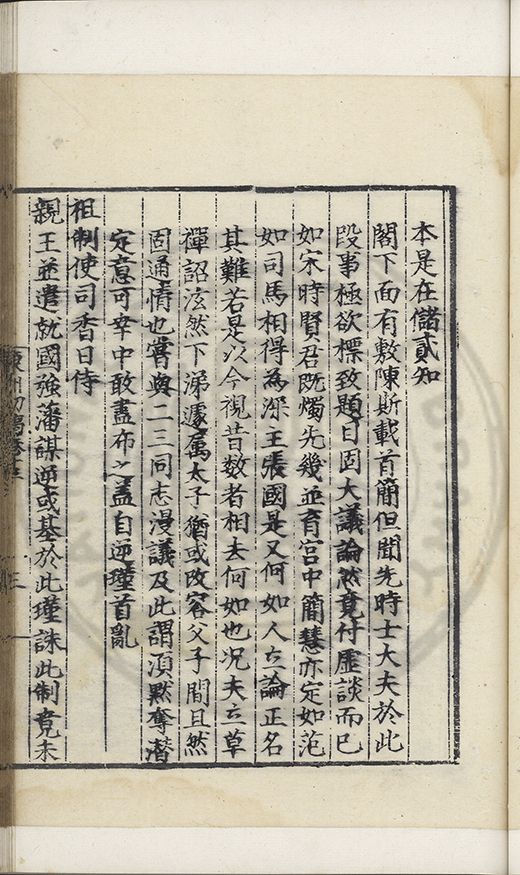 本是在儲貳知
閣下面有敷陳斯載首簡但聞先時士大夫於此
段事極欲標致題目固大議論然竟付虛談而已
如宋時賢君既燭先幾並育宮中簡慧亦定如范
如司馬相得為深主張國是又何如人立論正名
其難若是以今視昔数者相夫何如也况夫立草
禪詔泫然下涕遽属太子猶或改容父子間且然
固通情也嘗與二三同志漫議及此謂湏黙奪潛
定意可幸中敢盡布之蓋自逆瑾首亂
祖制使司香日侍
親王並遣就國強藩謀逆或基於此瑾誅此制竟未
三